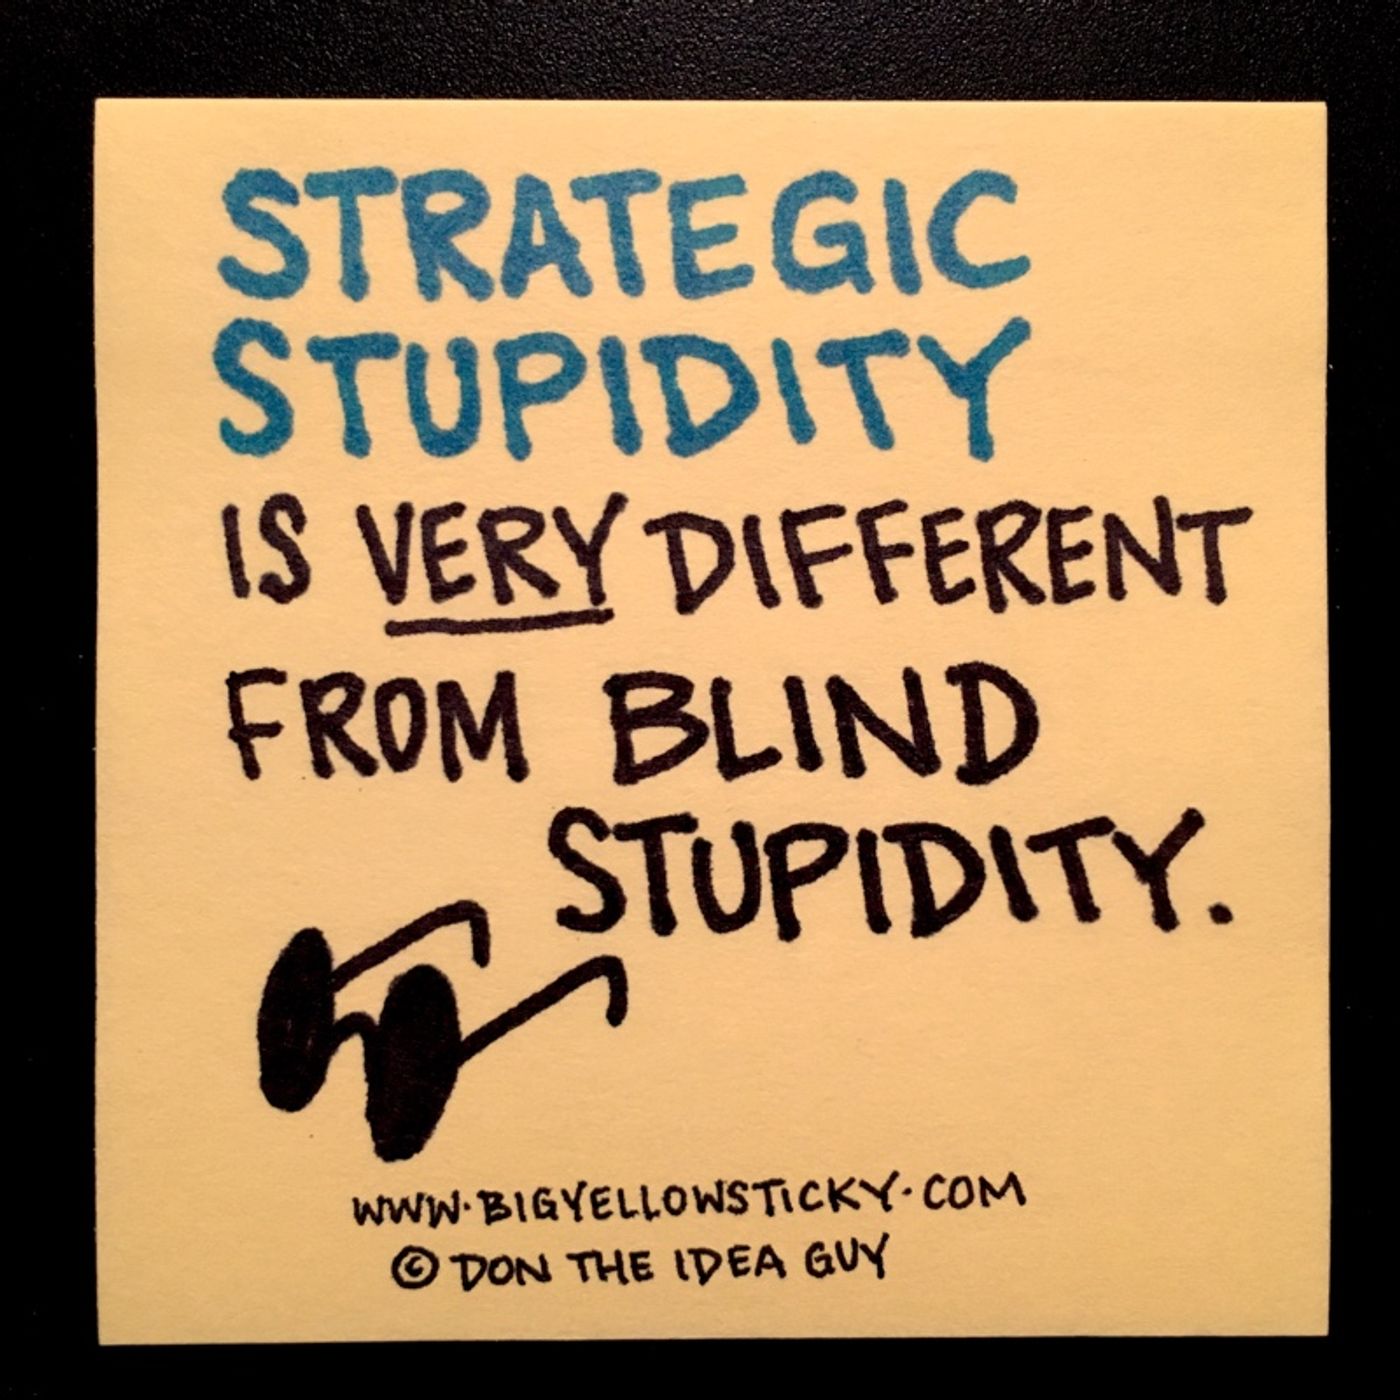 STRATEGIC
STUPIDITY
IS VERY DIFFERENT
FROM BLIND
STUPIDITY.
WWW.BIGYELLOWSTICKY.COM
© DON THE IDEA GUY